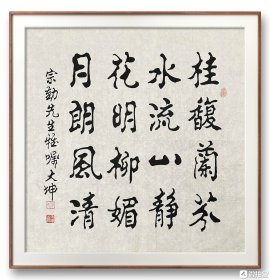 桂馥蘭芬
水流山静
花明柳媚
月朗風清
宗勤先生雅囑 大坤